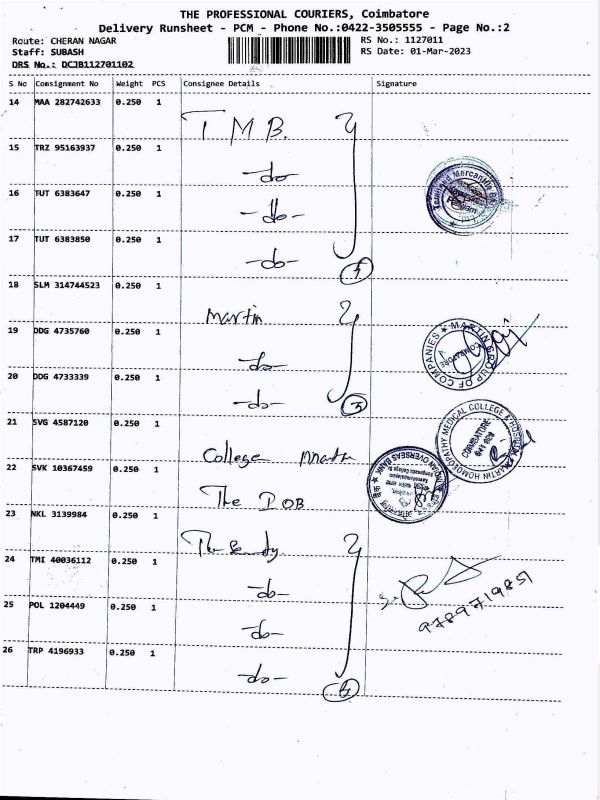 THE PROFESSIONAL COURIERS, Coimbatore
Delivery Runsheet - PCM - Phone No.:0422-3505555 - Page No.:2
Route: CHERAN NAGAR
RS No.: 1127011
Staff: SUBASH
RS Date: 01-Mar-2023
DRS No.: DCJB112701102
S No Consignment No Weight PCS Consignee Details Signature
14 MAA 282742633 0.250 1 T M B.
15 TRZ 95163937 0.250 1 -do-
16 TUT 6383647 0.250 1 -do-
17 TUT 6383850 0.250 1 -do- 4
18 SLM 314744523 0.250 1 Martin
19 DDG 4735760 0.250 1 -do-
MARTIN GROUP OF COMPANIES
COIMBATORE
20 DDG 4733339 0.250 1 -do- 3
21 SVG 4587120 0.250 1 College
MARTIN HOMOEOPATHY MEDICAL COLLEGE & HOSPITAL
COIMBATORE
22 SVK 10367459 0.250 1 The IOB
INDIAN OVERSEAS BANK
23 NKL 3139984 0.250 1
24 TMI 40036112 0.250 1 -do-
25 POL 1204449 0.250 1 -do-
9789719851
26 TRP 4196933 0.250 1 -do- 4